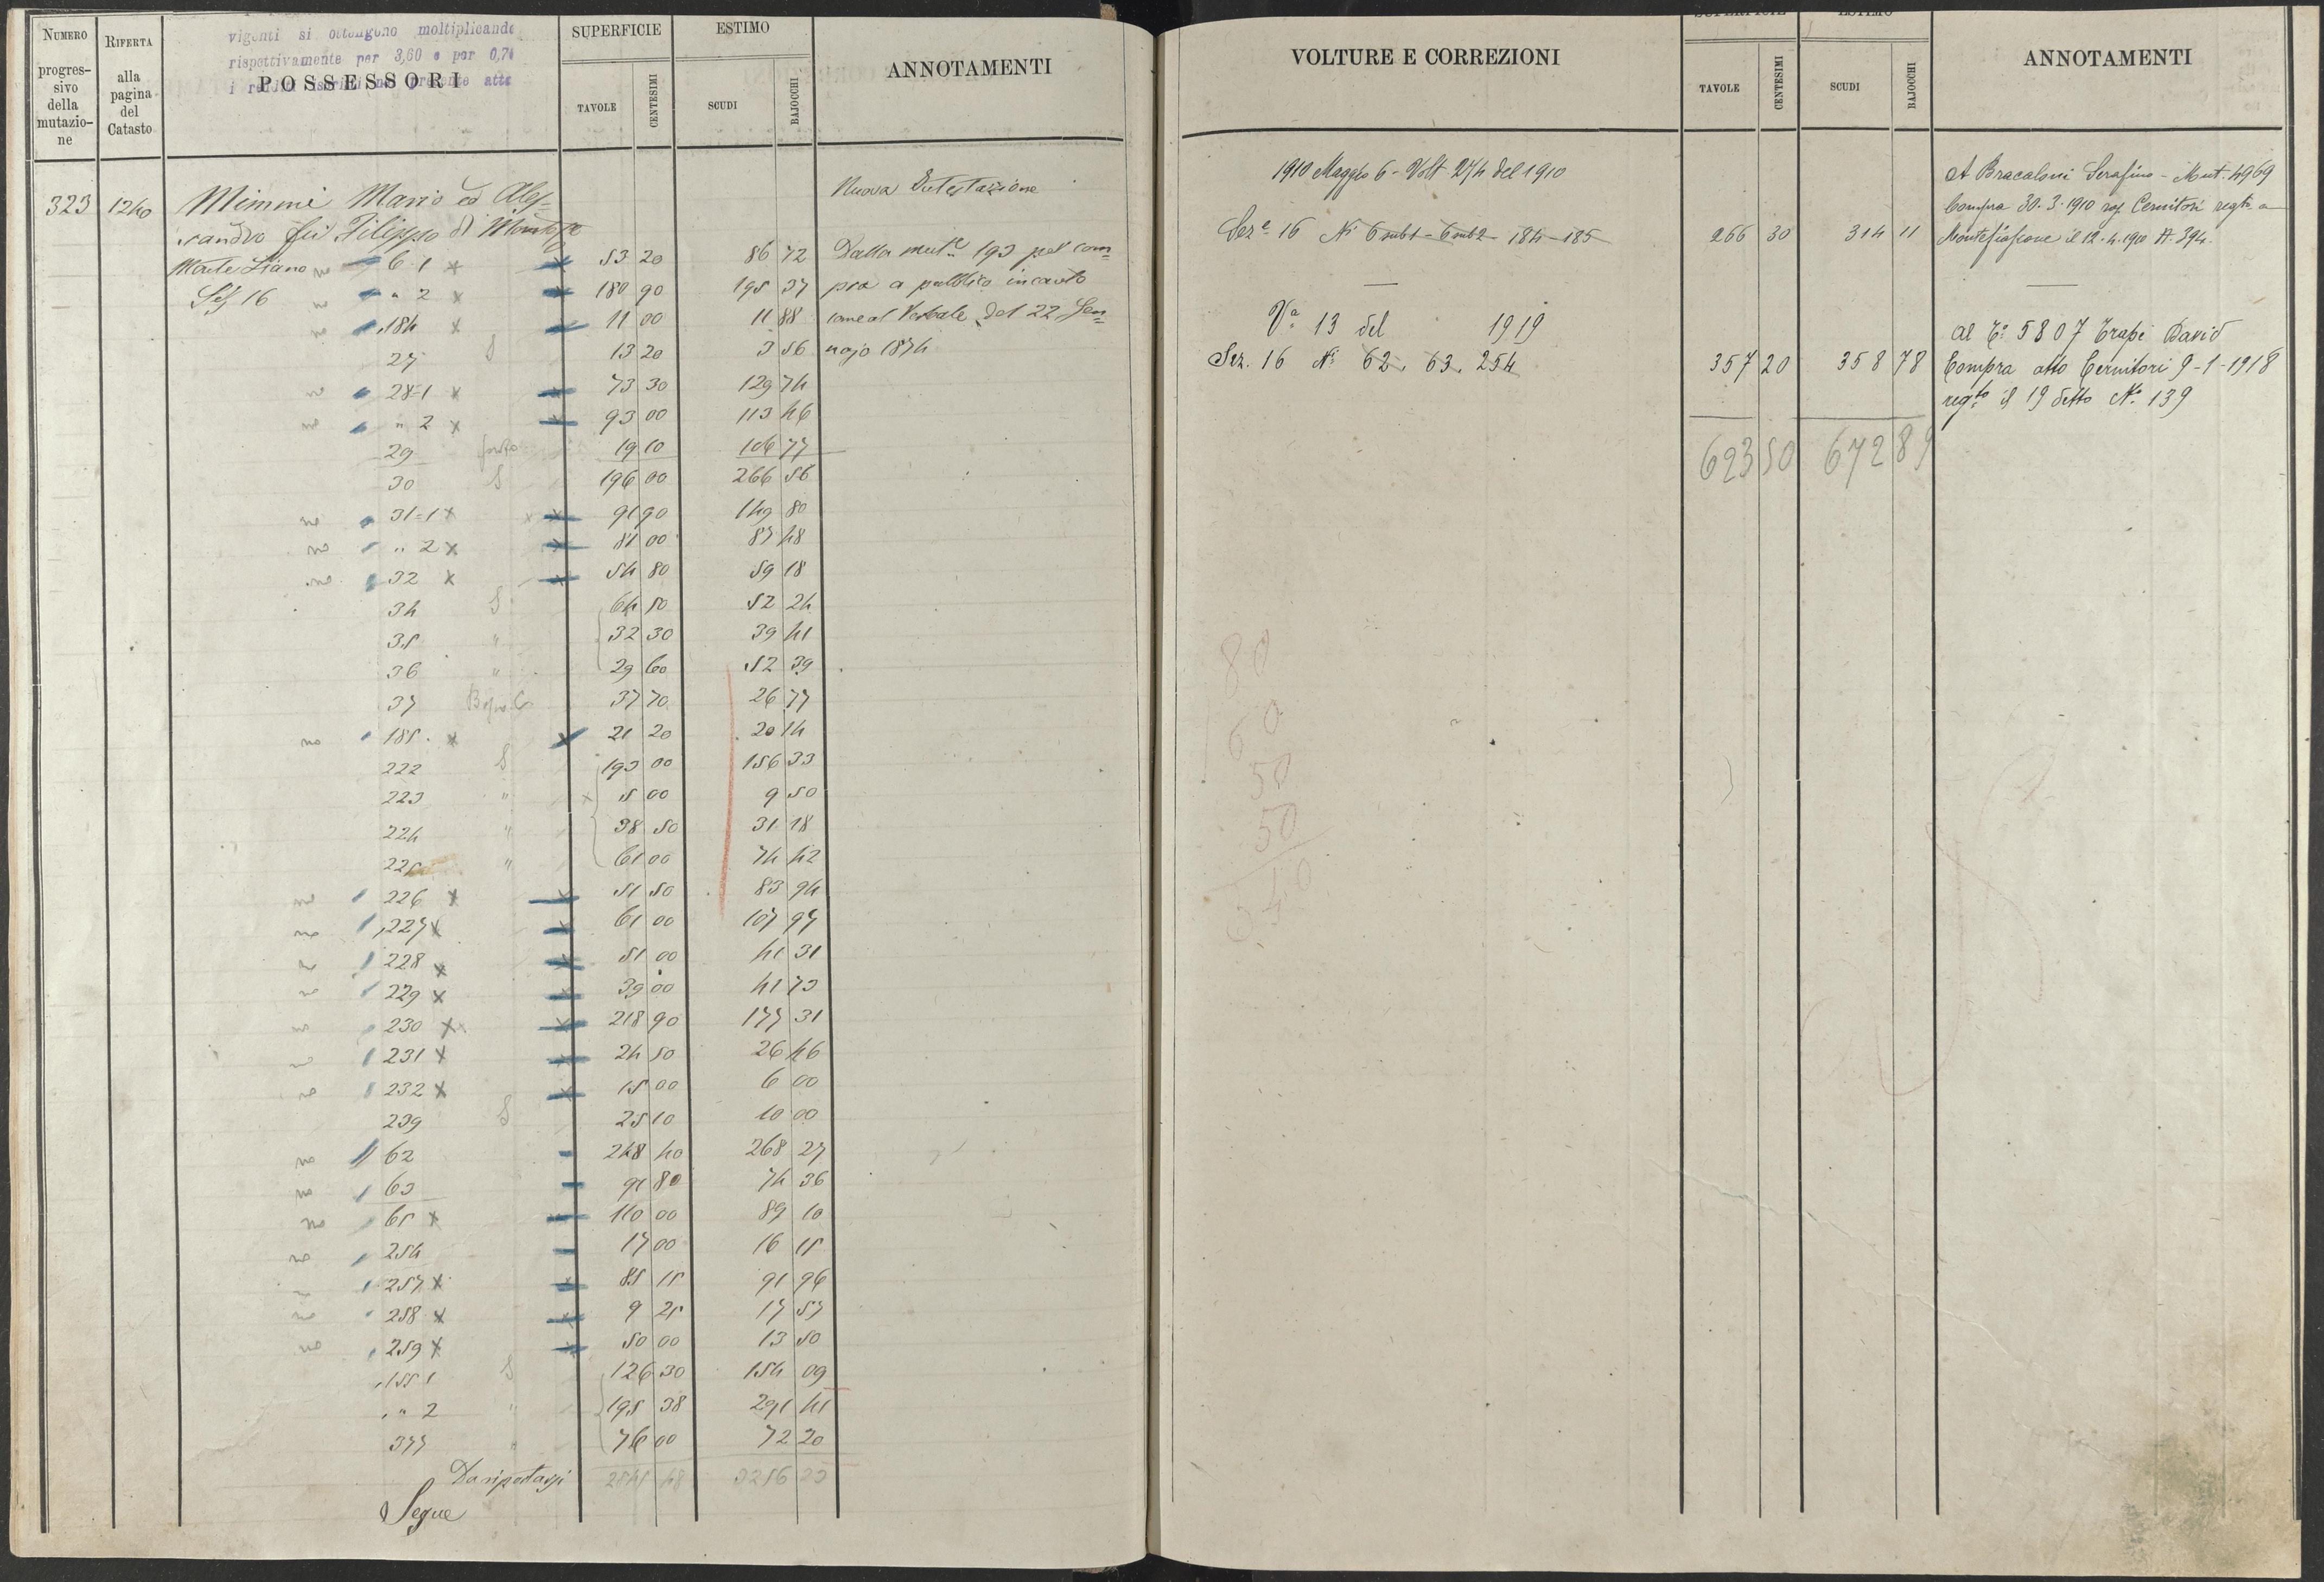 vigenti si ottengono moltiplicando
rispettivamente per 3,60 e per 0,74
NUMERO progressivo della mutazione
RIFERTA alla pagina del Catasto
POSSESSORI
SUPERFICIE
TAVOLE CENTESIMI
ESTIMO
SCUDI BAJOCCHI
ANNOTAMENTI
323 1240 Mimmi Mario ed Ales-
sandro fu Filippo di
Nuova Intestazione
Monte Liano no 6 1 x 53 20 86 72
Sez 16 no " 2 x 180 90 195 37
no 184 x 11 00 11 88
27 S 13 20 3 56
no 28=1 x 73 30 129 74
no " 2 x 93 00 113 46
29 19 10 106 77
30 S 196 00 266 56
no 31=1 x 91 90 149 80
no " 2 x 81 00 87 48
no 32 x 54 80 59 18
34 S 64 50 52 24
35 " 32 30 39 41
36 " 29 60 52 39
37 37 70 26 77
no 185 x 21 20 20 14
222 S 193 00 156 33
223 " x 5 00 9 50
224 " 38 50 31 18
225 " 61 00 74 42
no 226 x 51 50 83 94
no 227 x 61 00 107 97
no 228 x 51 00 41 31
no 229 x 39 00 41 73
no 230 x 218 90 177 31
no 231 x 24 50 26 46
no 232 x 15 00 6 00
239 S 25 10 10 00
no 62 248 40 268 27
no 63 91 80 74 36
no 65 x 110 00 89 10
no 254 17 00 16 15
no 257 x 85 15 91 96
no 258 x 9 25 17 57
no 259 x 50 00 13 50
155 1 S 126 30 154 09
" 2 " 195 38 291 41
377 " 76 00 72 20
Da riportarsi 3256 23
Segue
Dalla mut.e 193 pel com=
pra a pubblico incanto
come al Verbale del 22 Gen=
najo 1874
VOLTURE E CORREZIONI
TAVOLE CENTESIMI
SCUDI BAJOCCHI
ANNOTAMENTI
1910 Maggio 6 - Volt 27/4 del 1910
Sez.e 16 Ni 6 sub 1 - 6 sub 2 - 184 - 185 266 30 314 11
A Bracaloni Serafino - Mut. 4969
Compra 30.3.1910 rog Cernitori regto a
Montefiascone il 12.4.1910 N. 394.
Va 13 del 1919
Sez. 16 Ni 62. 63. 254 357 20 358 78
al 5807 Trapè David
Compra atto Cernitori 9-1-1918
regto il 19 detto No 139
623 50 672 89
80
60
50
50
240